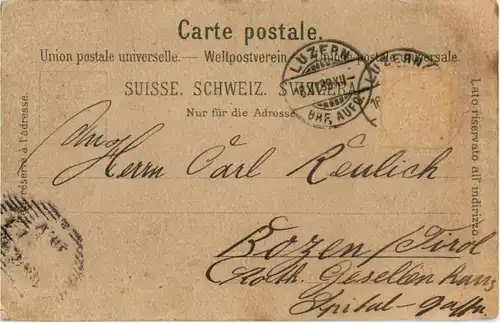 Carte postale.
Union postale universelle. — Weltpostverein — Unione postale universale.
SUISSE. SCHWEIZ. SVIZZERA.
Nur für die Adresse
LUZERN
BRF. AUFG.
LUZERN
Herrn Carl Reulich
Bozen / Tirol
Kath. Gesellen Haus
Spital-gasse
réservé à l'adresse.
Lato riservato all'indirizzo